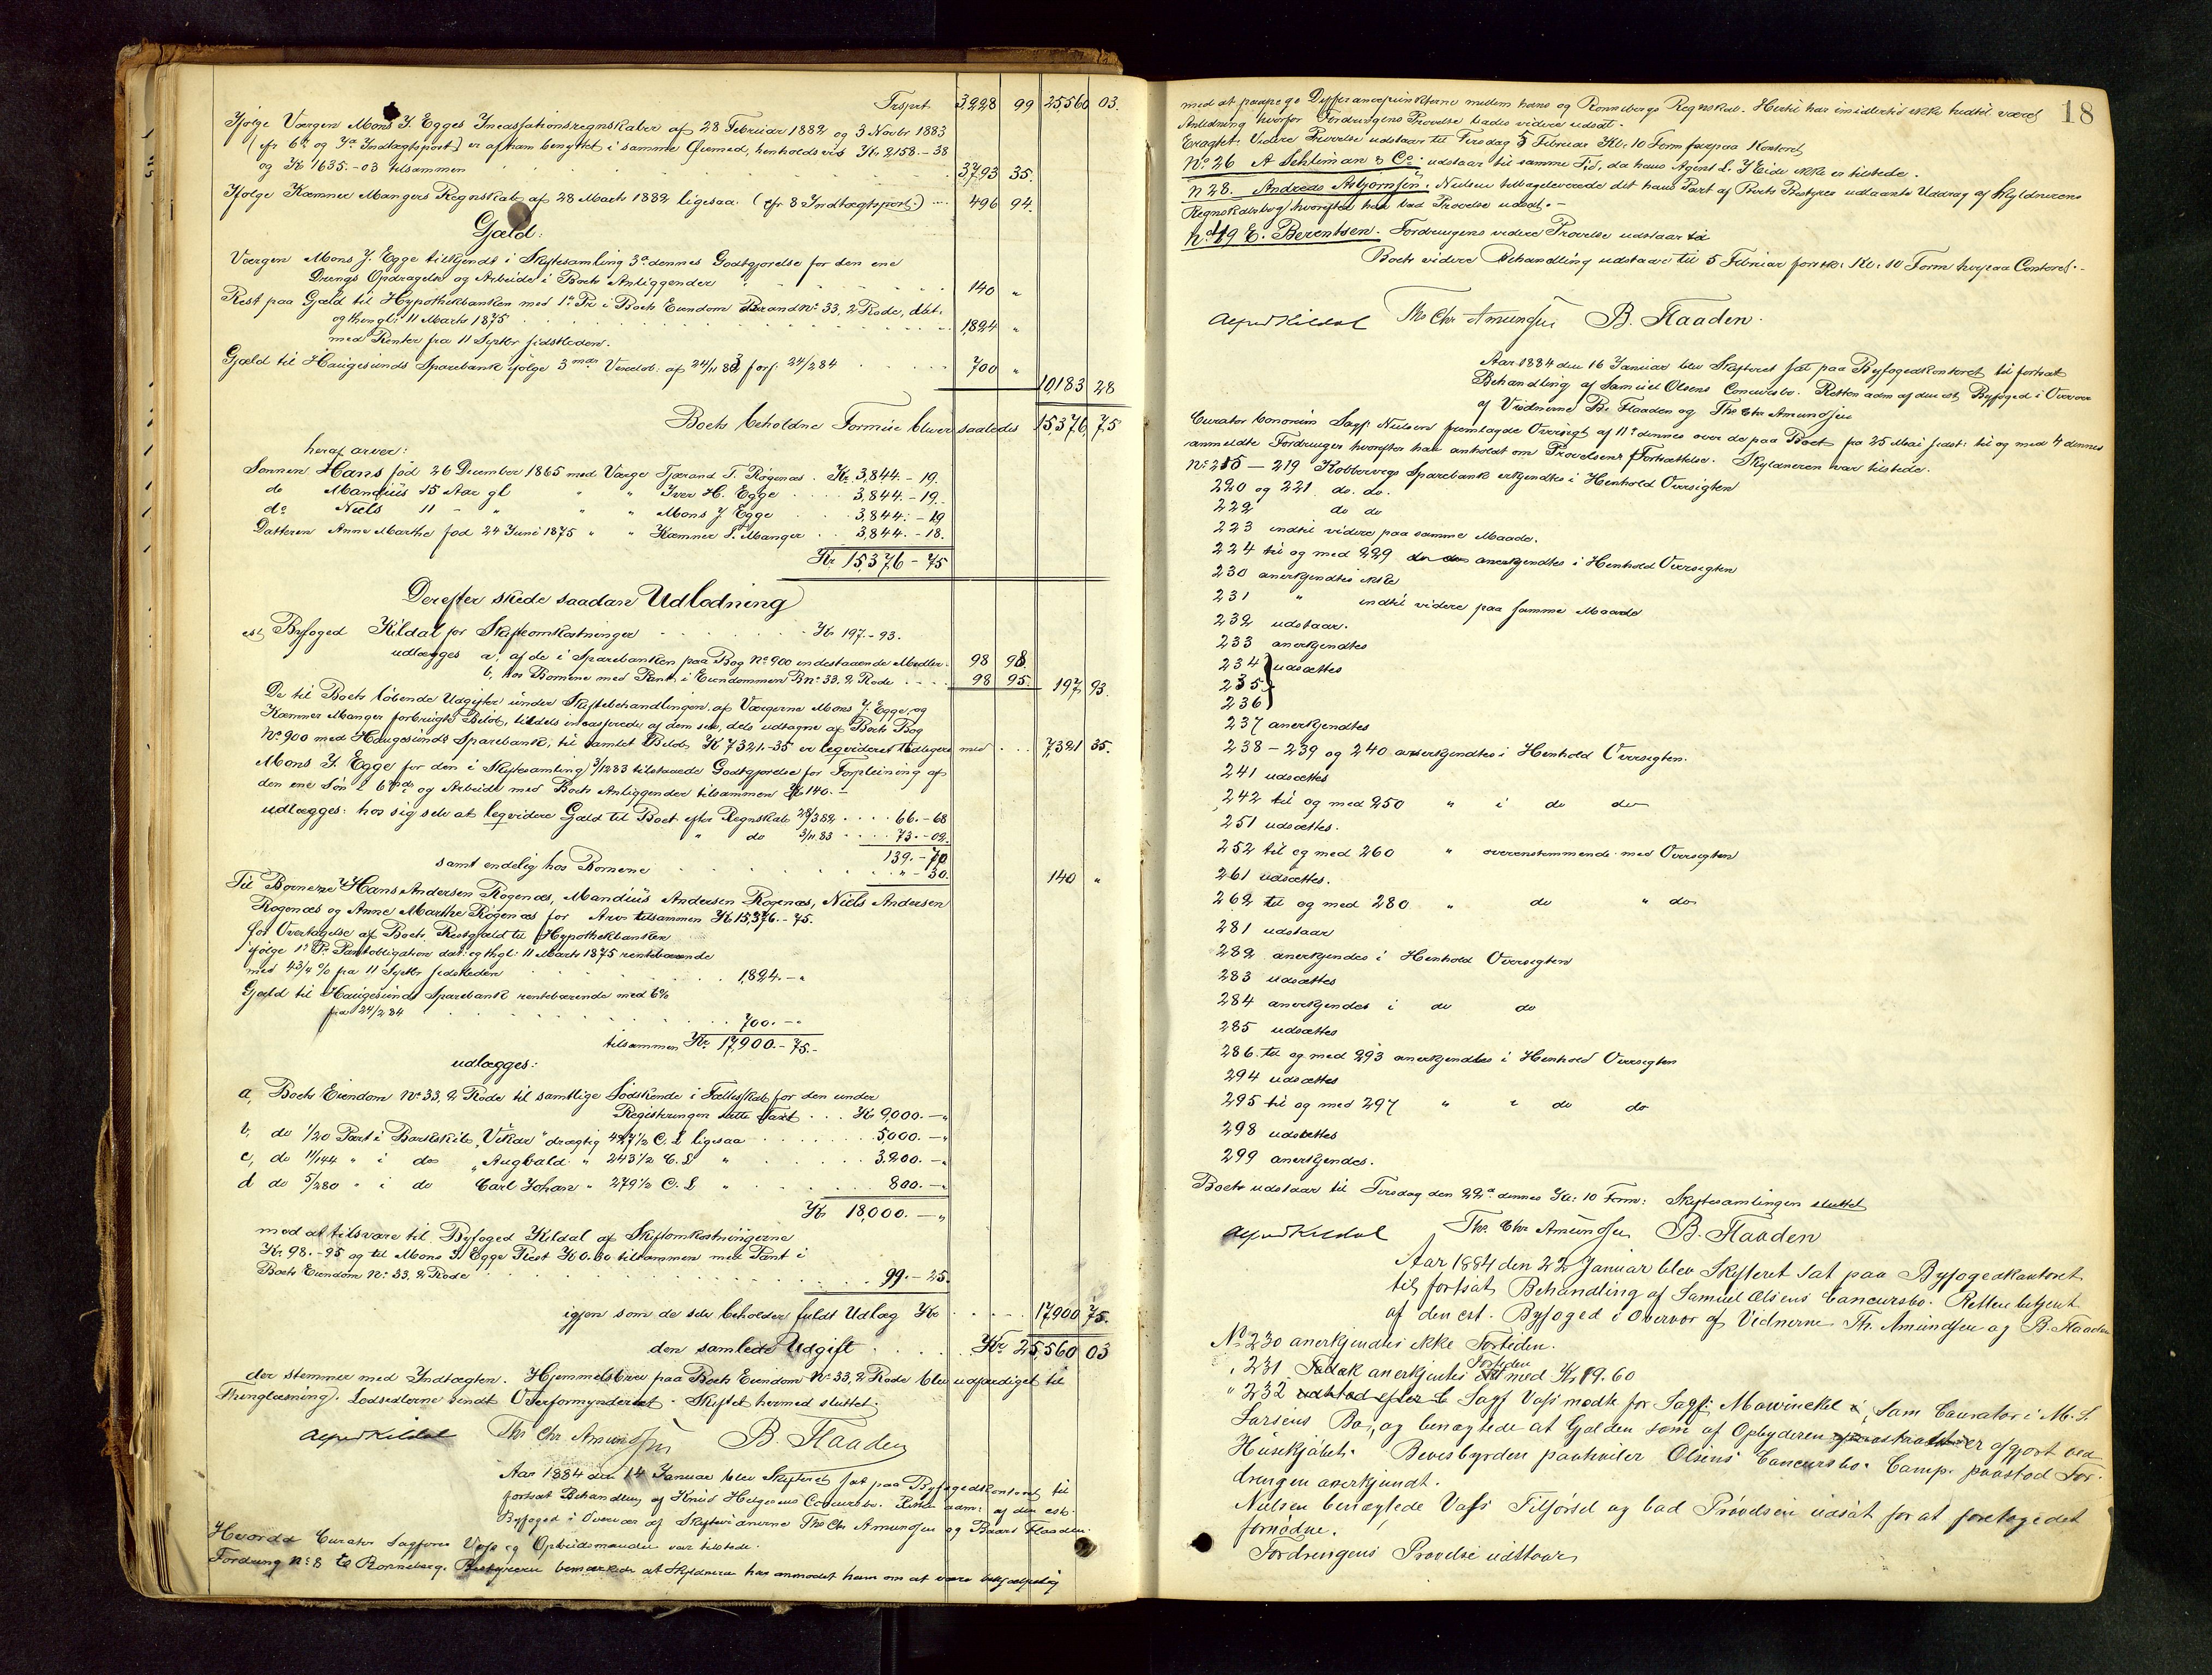 Trsprt. 3,228 99 25,560 03.
Ifølge Værgen Mons J. Egges Incassationsregnskaber af 28 Februar 1882 og 3 Novbr 1883
(cfr 6te og 7de Indtægtspost) er af ham benyttet i samme Øiemed, henholdsvis Kr. 2158.-38
og Kr 1635.-03 tilsammen 3,793 35.
Ifølge Kæmner Mangers Regnskab af 28 Marts 1882 ligesaa. (cfr 8 Indtægtspost.) 496 94.
Gjæld:
Værgen Mons J. Egge tilkjendt i Skiftesamling 3die dennes Godtgjørelse for den ene
Drengs Opdragelse og Arbeide i Boets Anliggender 140 "
Rest paa Gjæld til Hypothekbanken med 1ste Pr. i Boets Eiendom Brand No 33, 2 Rode, dat.
og thingl: 11 Marts 1875 1824 "
med Renter fra 11 Septbr sidstleden.
Gjæld til Haugesunds Sparebank ifølge 3 mdr Vexelobl: af 24/11 83 forf. 24/2 84 700 "
10,183 28
Boets beholdne Formue bliver saaledes 15,376 75
heraf arver:
Sønnen Hans fød 26 December 1865 med Værge Tjærand T. Røgenæs. Kr. 3,844.-19.
do Mandius 15 Aar gl " " Iver H. Egge 3,844.-19.
do Niels 11 - " " " Mons J. Egge 3,844.-19
Datteren Anne Marthe fød 24 Juni 1875 " " Kæmner S. Manger 3,844.-18.
Kr 15,376-75
Derefter skede saadan Udlodning
est Byfoged Kildal for Skifteomkostninger Kr 197.-93.
udlægges a, af de i Sparebanken paa Bog No 900 indestaaende Midler 98 98.
b, hos Børnene med Pant i Eiendommen B No 33, 2 Rode 98 95. 197 93.
De til Boets løbende Udgifter under Skiftebehandlingen af Værgerne Mons J. Egge og
Kæmner Manger forbrugte Beløb, tildels incasserede af dem selv, dels udtagne af Boets Bog
No 900 med Haugesunds Sparebank, til samlet Beløb Kr 7321.-35 er leqvideret tidligere med 7,321 35.
Mons J. Egge for den i Skiftesamling 3/12 83 tilstaaede Godtgjørelse for Forpleining af
den ene Søn i 6 mdr og Arbeide med Boets Anliggender tilsammen Kr 140.-
udlægges: hos sig selv at leqvidere Gjæld til Boet efter Regnskab 28/3 82 66.-68
" do 3/11 83 73.-02.
139.-70
samt endelig hos Børnene " -30. 140 "
Til Børnene Hans Andersen Røgenæs, Mandius Andersen Røgenæs, Niels Andersen
Røgenæs og Anne Marthe Røgenæs for Arv tilsammen Kr 15,376.-75.
for Overtagelse af Boets Restgjæld til Hypothekbanken
ifølge 1ste Pr. Pantobligation dat: og thgl: 11 Marts 1875 rentebærende
med 4 3/4 % fra 11 Septbr sidstleden 1,824.-"
Gjæld til Haugesunds Sparebank rentebærende med 6%
fra 24/2 84 700.-"
tilsammen Kr. 17,900.-75.-
udlægges:
a, Boets Eiendom No 33, 2 Rode til samtlige Sødskende i Fællesskab for den under
Registeringen satte Taxt Kr 9,000.-"
b, do 1/20 Part i Barkskib "Vikar" drægtig 427 1/2 C. L ligesaa 5,000.-"
c, do 11/144 " i do "Augbald" " 243 1/2 C. L " 3.200.-"
d do 5/280 " i do Carl Johan " 279 1/2 C. L " 800.-"
Kr 18,000.-"
mod at tilsvare til Byfoged Kildal af Skifteomkostningerne
Kr 98.-95 og til Mons J. Egge Rest Kr 0.30 tilsammen med Pant i
Boets Eiendom No 33, 2 Rode 99.-25.
igjen som de selv beholder fuldt Udlæg Kr 17,900 75.
den samlede Udgift Kr 25,560 03
der stemmer med Indtægten. Hjemmelsbrev paa Boets Eiendom No 33, 2 Rode blev udfærdiget til
Thinglæsning. Lodsedlerne sendt Overformynderiet. Skiftet hermed sluttet.
Alfred Kildal Ths Chr Amundsen B. Flaaden
Aar 1884 den 14 Januar blev Skifteret sat paa Byfogedkontoret til
fortsat Behandling af Knud Helgesens Concursbo. Retten adm: af den est.
Byfoged i Overvær af Skiftevidnerne Ths Chr Amundsen og Baard Flaaden.
Hvorda Curator Sagfører Vass og Opbudsmanden var tilstede.
Fordring No 8 C Rønneberg. Bestyreren bemærkede at Skyldneren har anmodet ham om at være behjælpelig
18
med at paapege Differancepunkterne mellem hans og Rønnebergs Regnskab. Hertil har imidlertid ikke hidtil været
Anledning hvorfor Fordringens Prøvelse bades videre udsat.
Eragtet: Videre Prøvelse udstaar til Tirsdag 5 Februar Kl: 10 Form herpaa Kontoret,
No 26 A Schliman & Co: udstaar til samme Tid, da hans Agent L. J Eide ikke er tilstede.
No 28. Andreas Asbjørnsen. Nielsen tilbageleverede det hans Part af Boets Bestyrer udlaante Uddrag af Skyldnerens
Regnskabsbog hvorefter han bad Prøvelse udsat.-
No 49 E. Berentsen. Fordringens videre Prøvelse udstaar til
Boets videre Behandling udstaar til 5 Februar førstk: Kl: 10 Form herpaa Contoret.-
Alfred Kildal Ths Chr Amundsen B. Flaaden.
Aar 1884 den 16 Januar blev Skifteret sat paa Byfogedkontoret til fortsat
Behandling af Samuel Olsens Concursbo. Retten adm af den est. Byfoged i Overvær
af Vidnerne B. Flaaden og Ths Chr Amundsen
Curator bonorum Sagf: Nielsen fremlagde Oversigt af 11te dennes over de paa Boet fra 25 Mai sidst: til og med 4 dennes
anmeldte Fordringer hvorefter han anholdt om Prøvelsens Fortsættelse. Skyldneren var tilstede.
No 215 - 219 Kobbervigs Sparebank erkjendtes i Henhold Oversigten
220 og 221 do. do.
222 do do
223 indtil videre paa samme Maade.
224 til og med 229 do do anerkjendtes i Henhold Oversigten
230 anerkjendtes ikke
231 " indtil videre paa samme Maade
232 udstaar.
233 anerkjendtes
234 } udsættes
235
236
237 anerkjendtes
238 - 239 og 240 anerkjendtes i Henhold Oversigten.
241 udsættes
242 til og med 250 " i do do
251 udsættes.
252 til og med 260 " overensstemmende med Oversigten
261 udsættes.
262 til og med 280 " do " do
281 udstaar
282 anerkjendes i Henhold Oversigten
283 udsættes
284 anerkjendes i do do
285 udsættes
286 til og med 293 anerkjendtes i Henhold Oversigten
294 udsættes
295 til og med 297 " i do do
298 udsættes
299 anerkjendes.
Boet udstaar til Tirsdag den 22de dennes Kl: 10 Form: Skiftesamlingen sluttet
Alfred Kildal Ths. Chr Amundsen B. Flaaden
Aar 1884 den 22 Januar blev Skifteret sat paa Byfogedkontoret
til fortsat Behandling af Samuel Olsens Concursbo. Retten betjent
af den est. Byfoged i Overvær af Vidnerne Th. Amundsen og B. Flaaden
No 230 anerkjendtes ikke Fortiden.
" 231 anerkjentes Fortiden med Kr 19.60
" 232 udstod efter Sagf Vass mødte for Sagf: Mowinckel som Caurator i M. S.
Larsens Bo, og benægtede at Gjælden som af Opbyderen er afgjort ved
Huskjøbet. Bevisbyrden paahviler Olsens Concursbo. Comp. paastod For-
dringen anerkjendt.
Nielsen benægtede Vass Tilførsel og bad Prøvelsen udsat for at foretage det
fornødne.
Fordringens Prøvelse udstaar